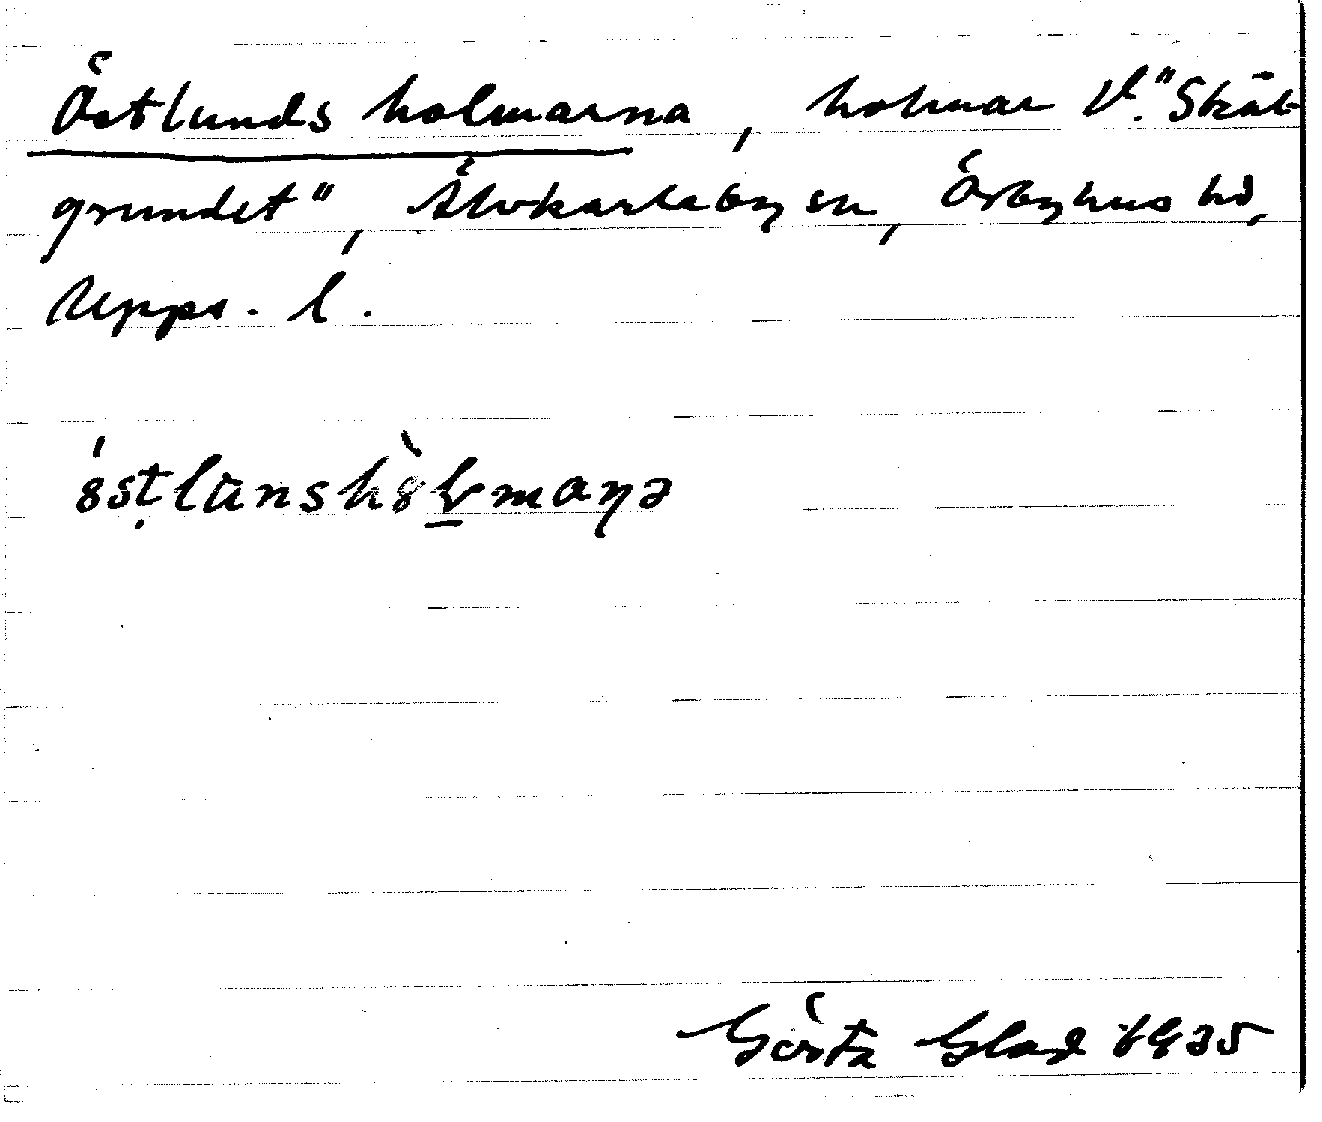 Östlunds holmarna, holmar V. "Skät-
grundet", Älvkarleby sn, Örbyhus hd,
Upps. l.
Gösta Glad 1935